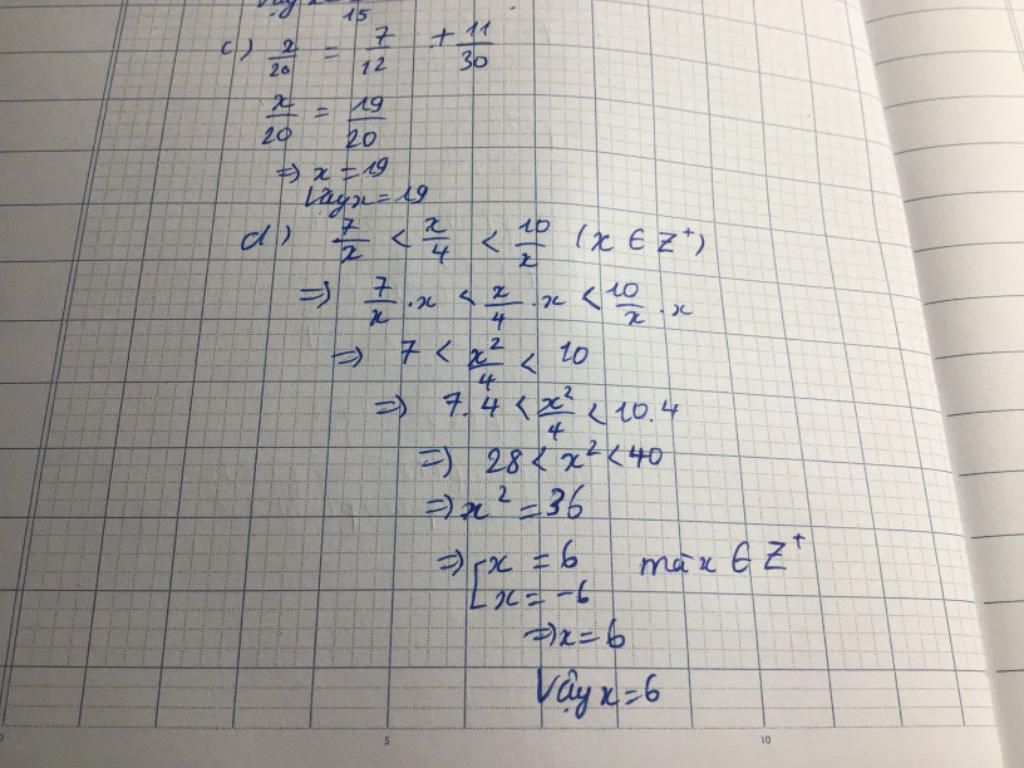 15
c) x/20 = 7/12 + 11/30
x/20 = 19/20
=> x = 19
Vậy x = 19
d) 7/x < x/4 < 10/x (x ∈ Z⁺)
=> 7/x . x < x/4 . x < 10/x . x
=> 7 < x²/4 < 10
=> 7.4 < x²/4 < 10.4
=> 28 < x² < 40
=> x² = 36
=> [ x = 6 mà x ∈ Z⁺
x = -6
=> x = 6
Vậy x = 6
5 10